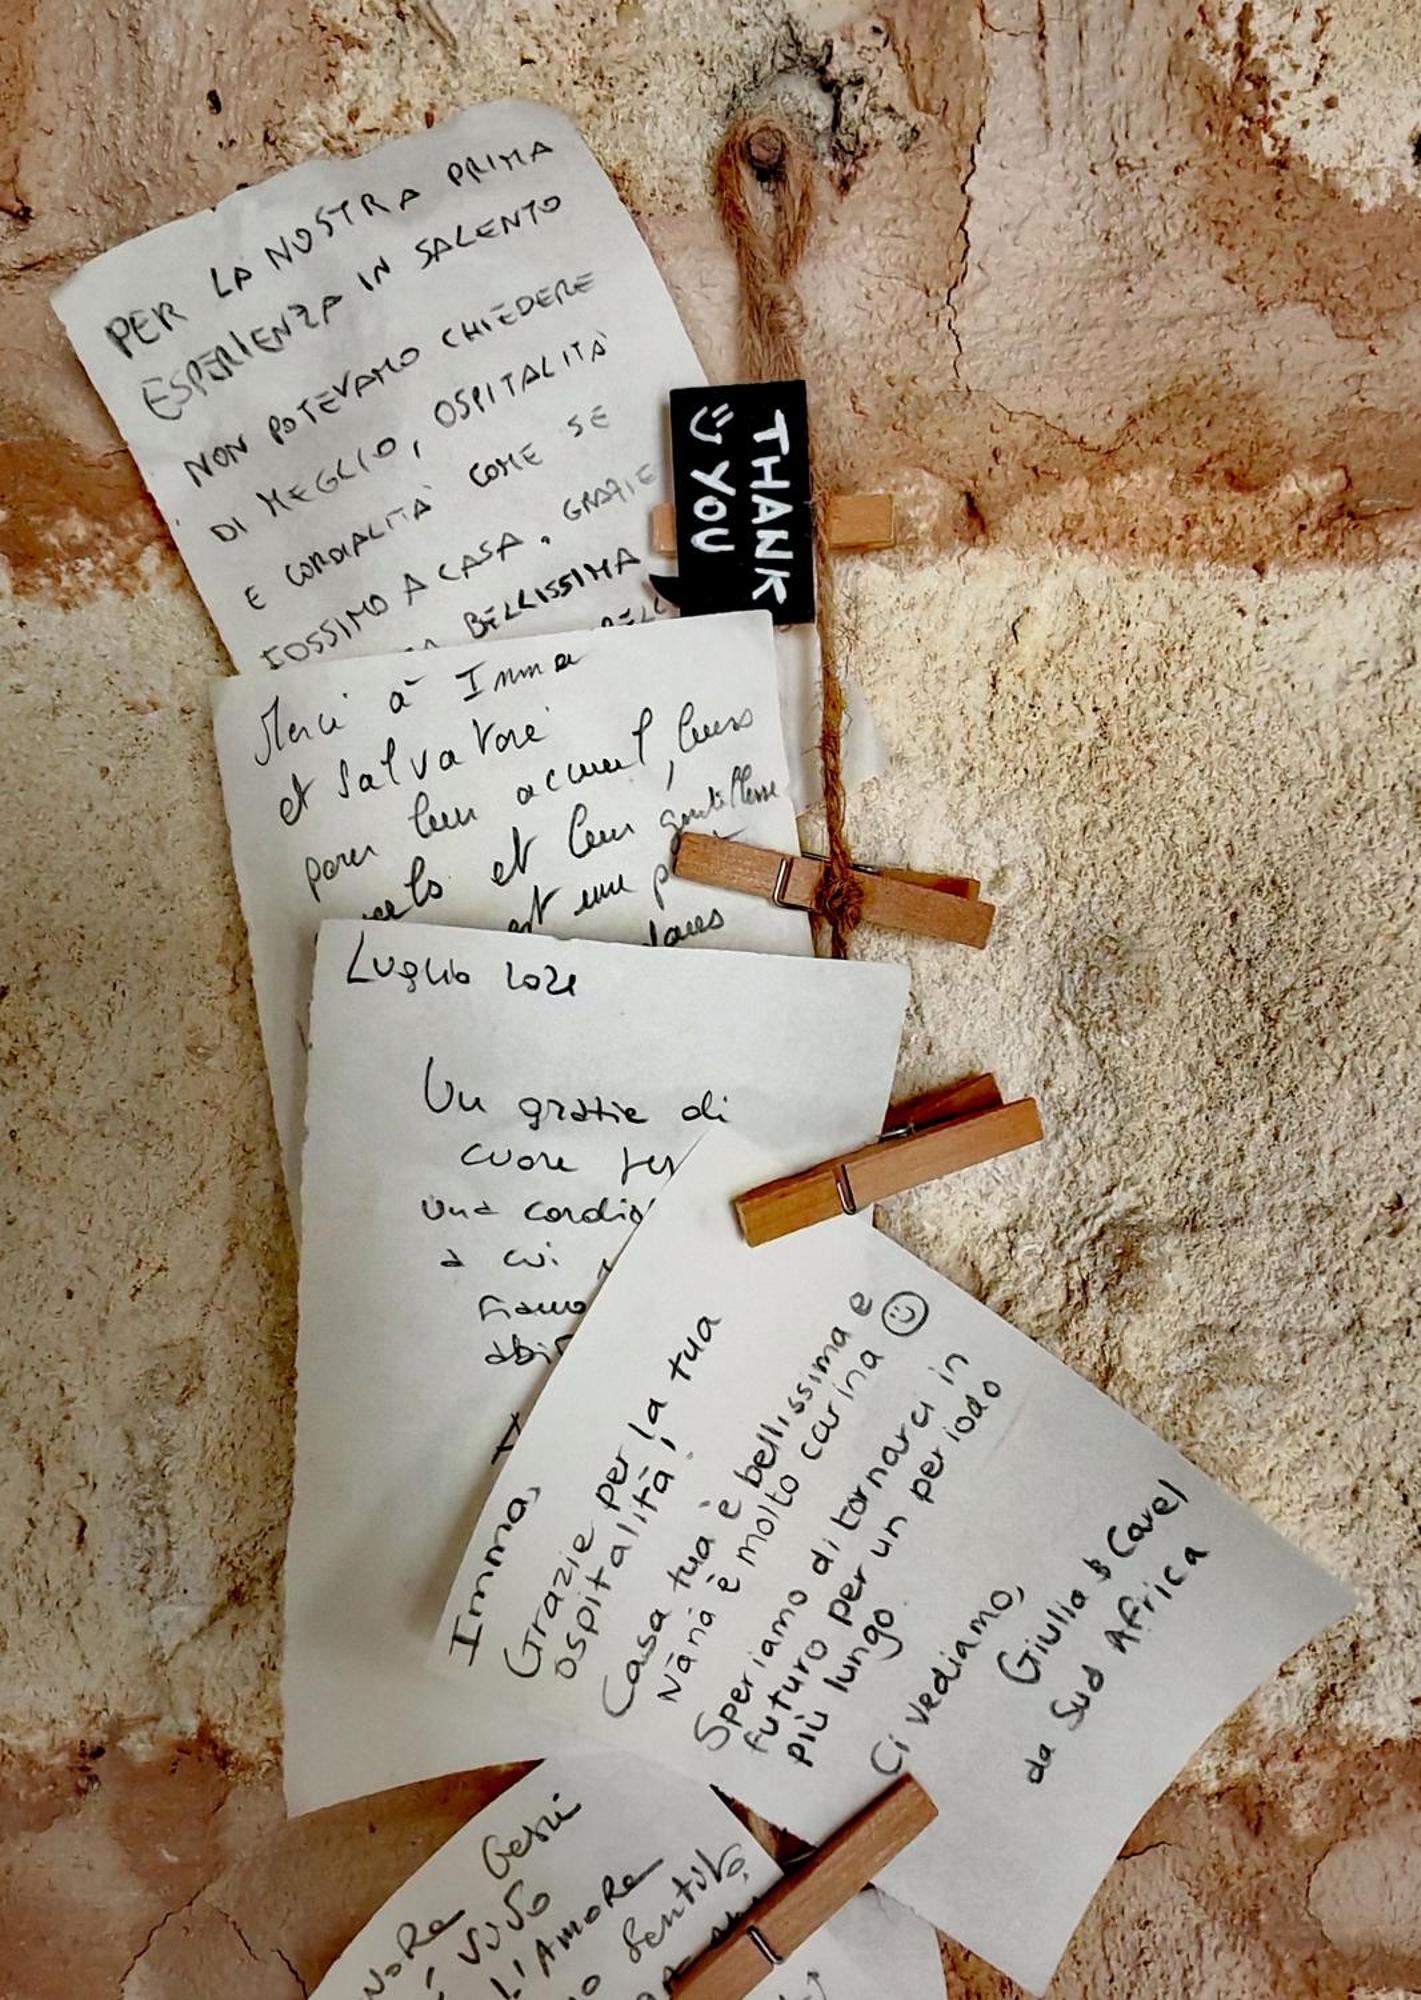 PER LA NOSTRA PRIMA
ESPERIENZA IN SALENTO
NON POTEVAMO CHIEDERE
DI MEGLIO, OSPITALITA'
E CORDIALITA' COME SE
FOSSIMO A CASA. GRAZIE
BELLISSIMA
THANK
YOU
Merci à Imma
et Salvatore
pour leur accueil, leurs
et leur gentillesse
est une
dans
Luglio 2021
Un grazie di
cuore per
una
a cui
siamo
Imma,
Grazie per la tua
ospitalità!
Casa tua è bellissima e
Nanà è molto carina ☺
Speriamo di tornarci in
futuro per un periodo
più lungo.
Ci vediamo,
Giulia & Cavel
da Sud Africa
L'AMORE